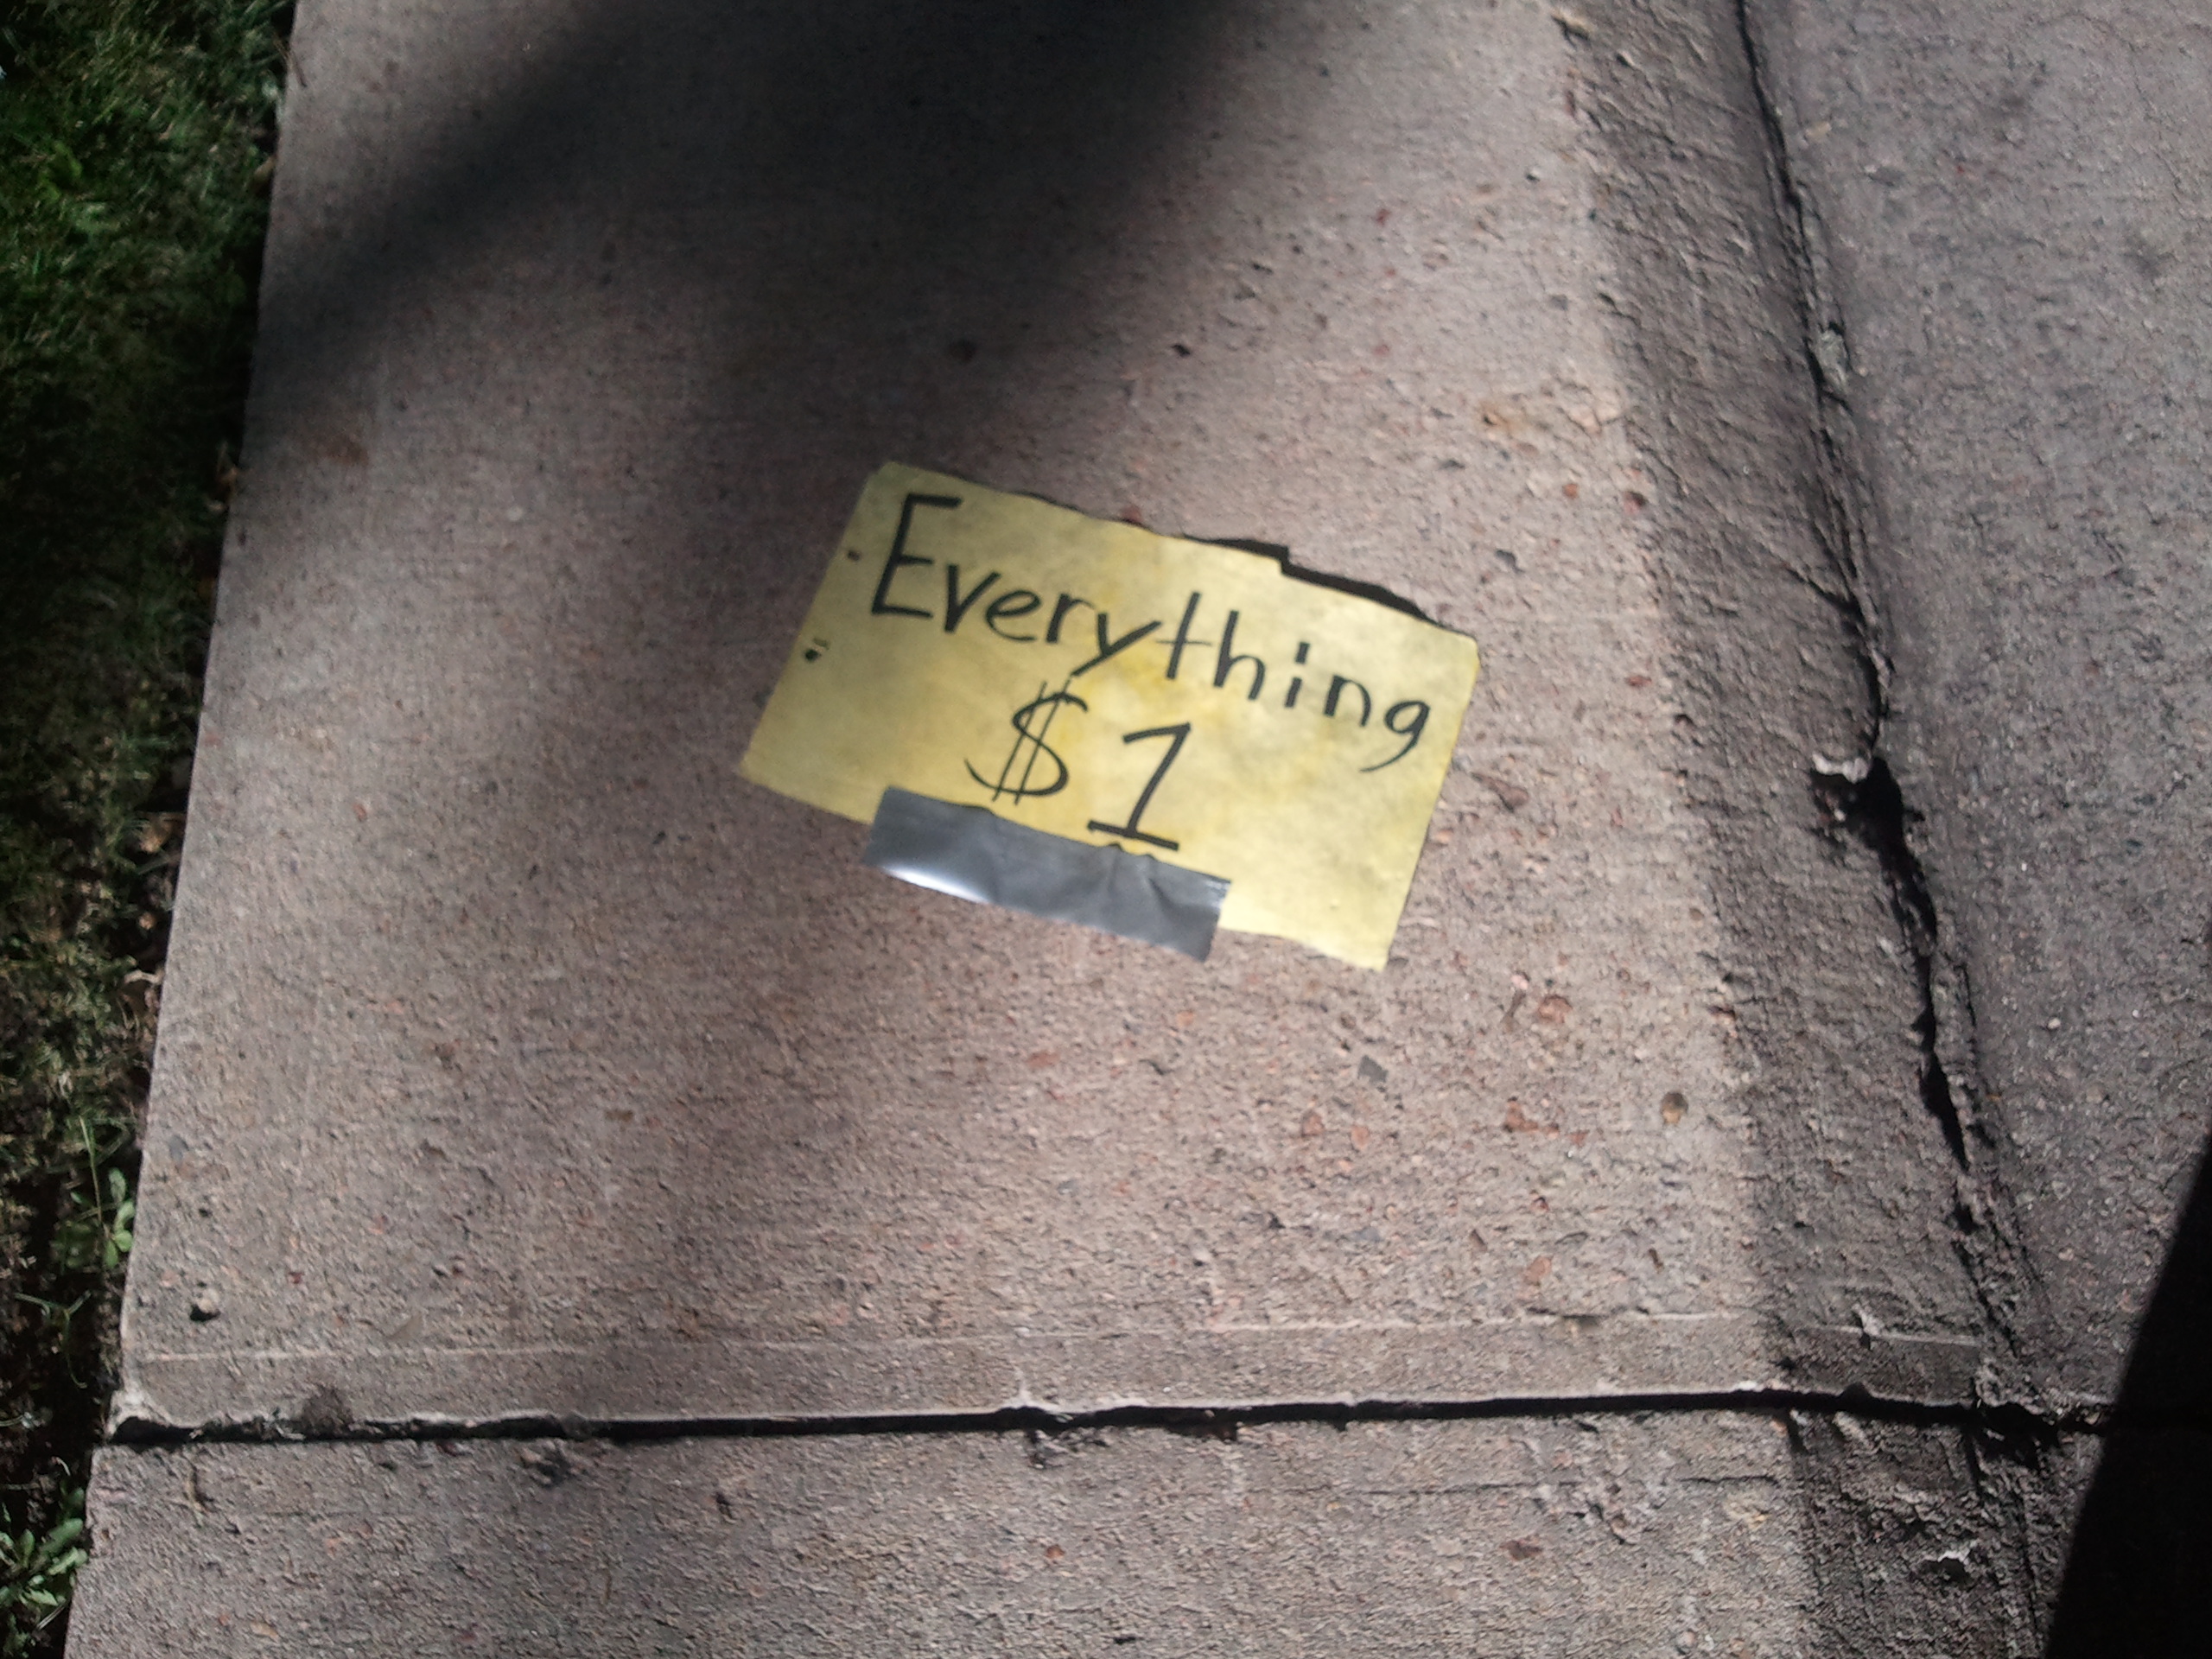 Everything
$1